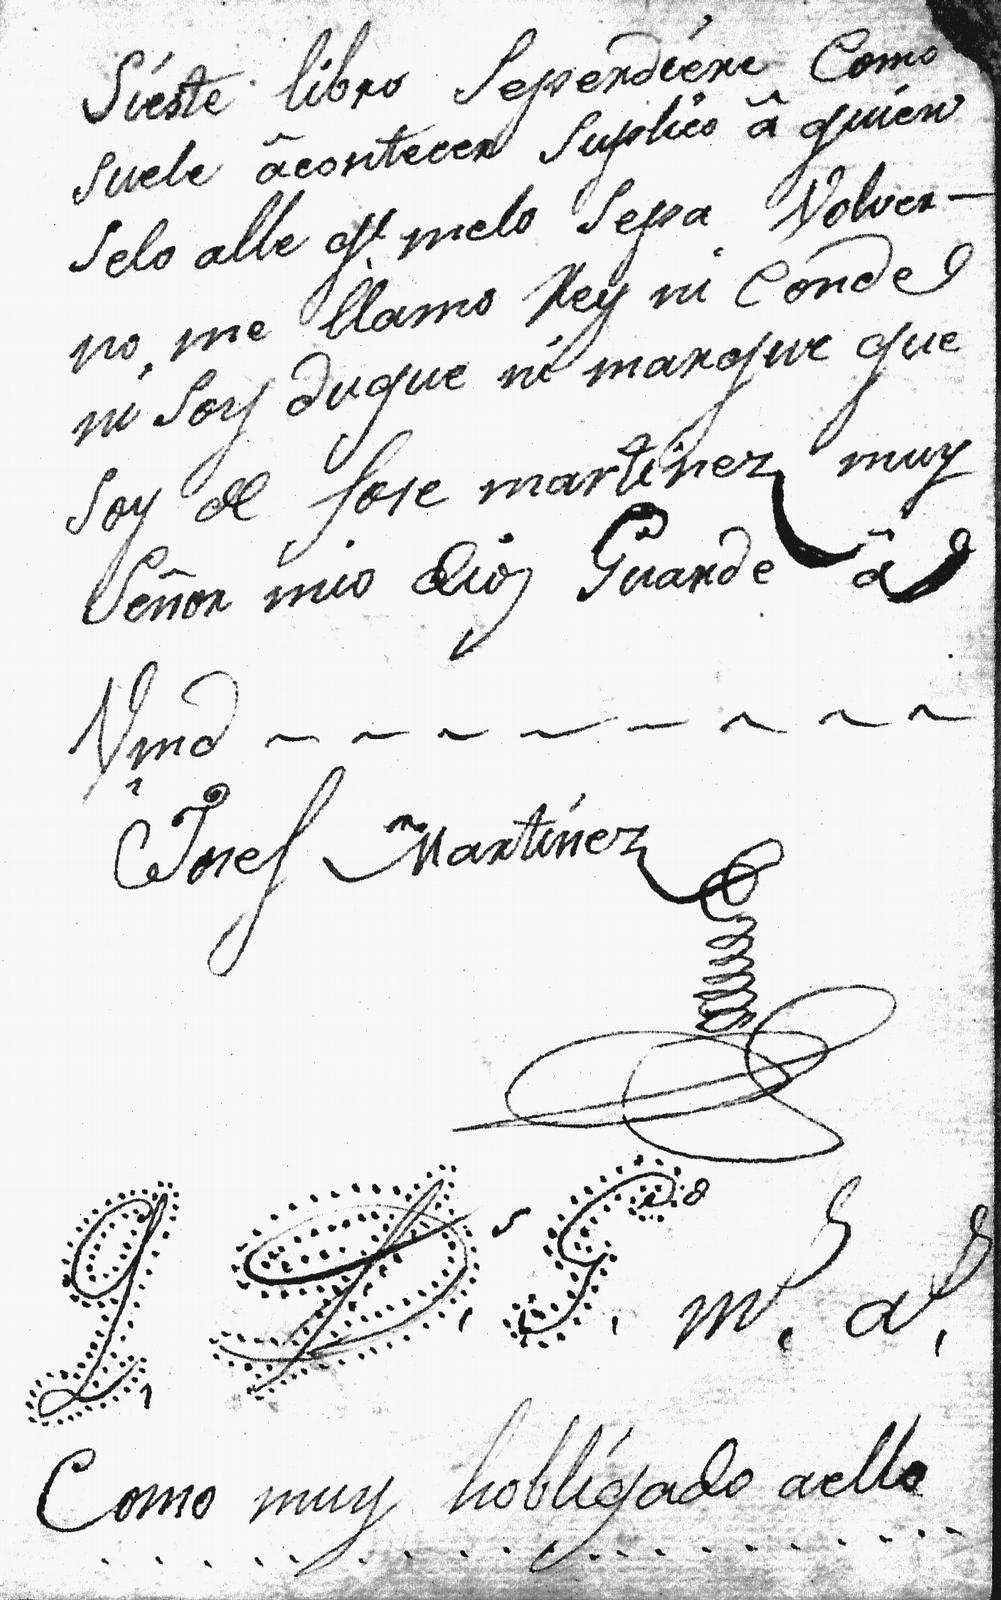 Sieste libro Seperdiere Como
suele âcontecer Suplico â quien
selo alle q.e melo sepa Volver—
no, me llamo Rey ni Conde
ni Soy duque ni marque que
soy de Jose martinez muy
Señor mio dios Guarde â
Vmd
Josef Martínez
m.s a.s
Como muy hobligado aello